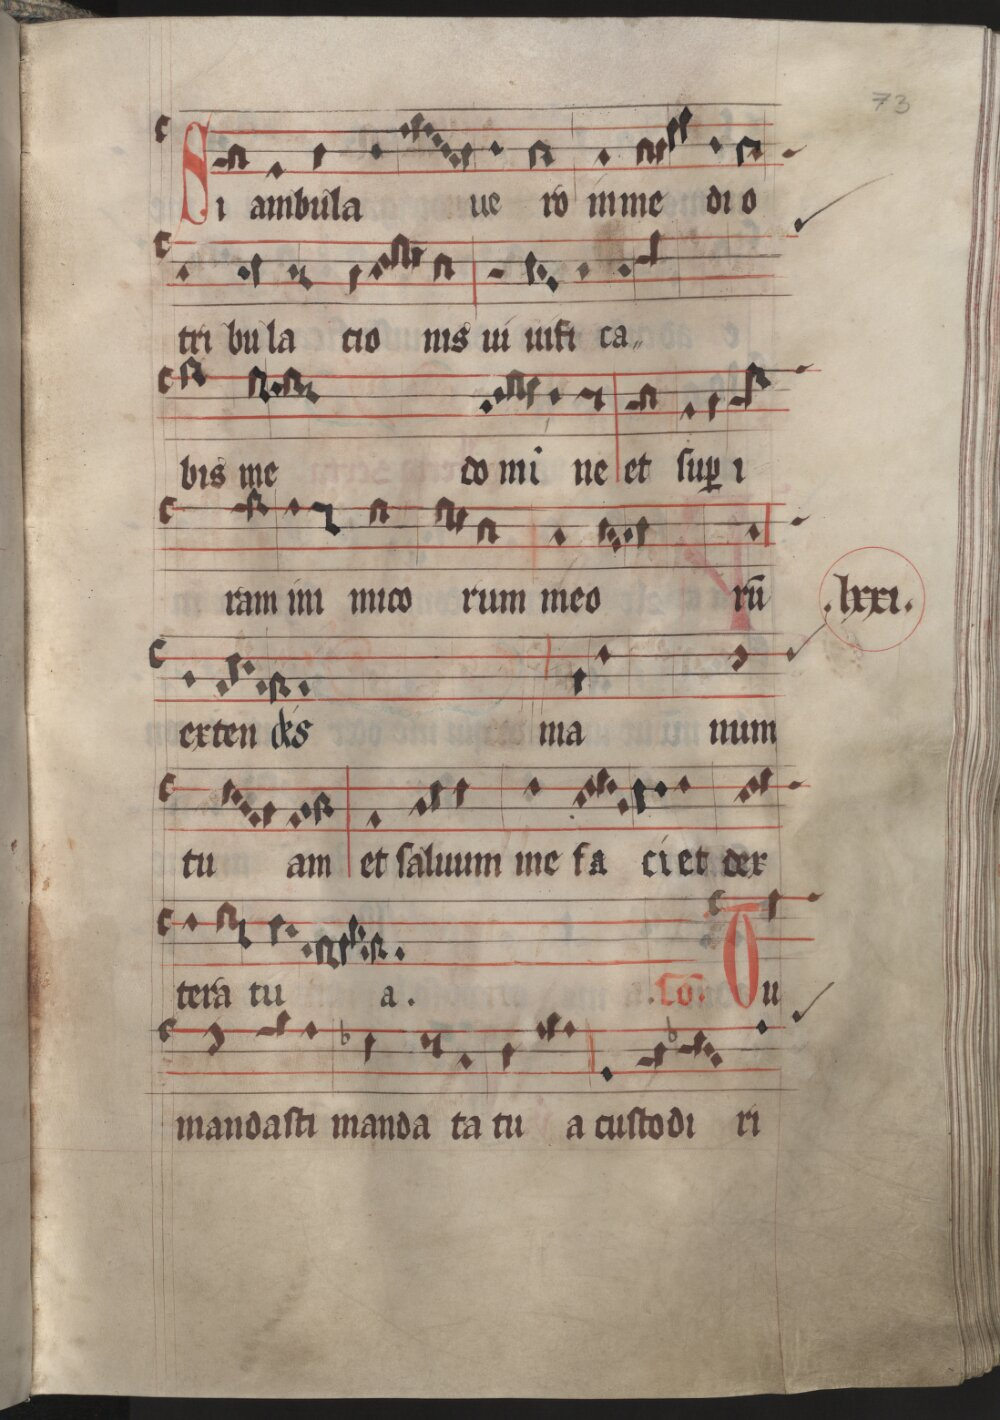 73
Si ambula ue ro in me dio
tri bu la cio nis ui uifi ca〃
bis me do mi ne et suꝑ i
ram ini mico rum meo rū
.lxxi.
exten des ma num
tu am et saluum me fa ci et dex
tera tu a . .Co̅. Tu
mandasti manda ta tu a custodi ri